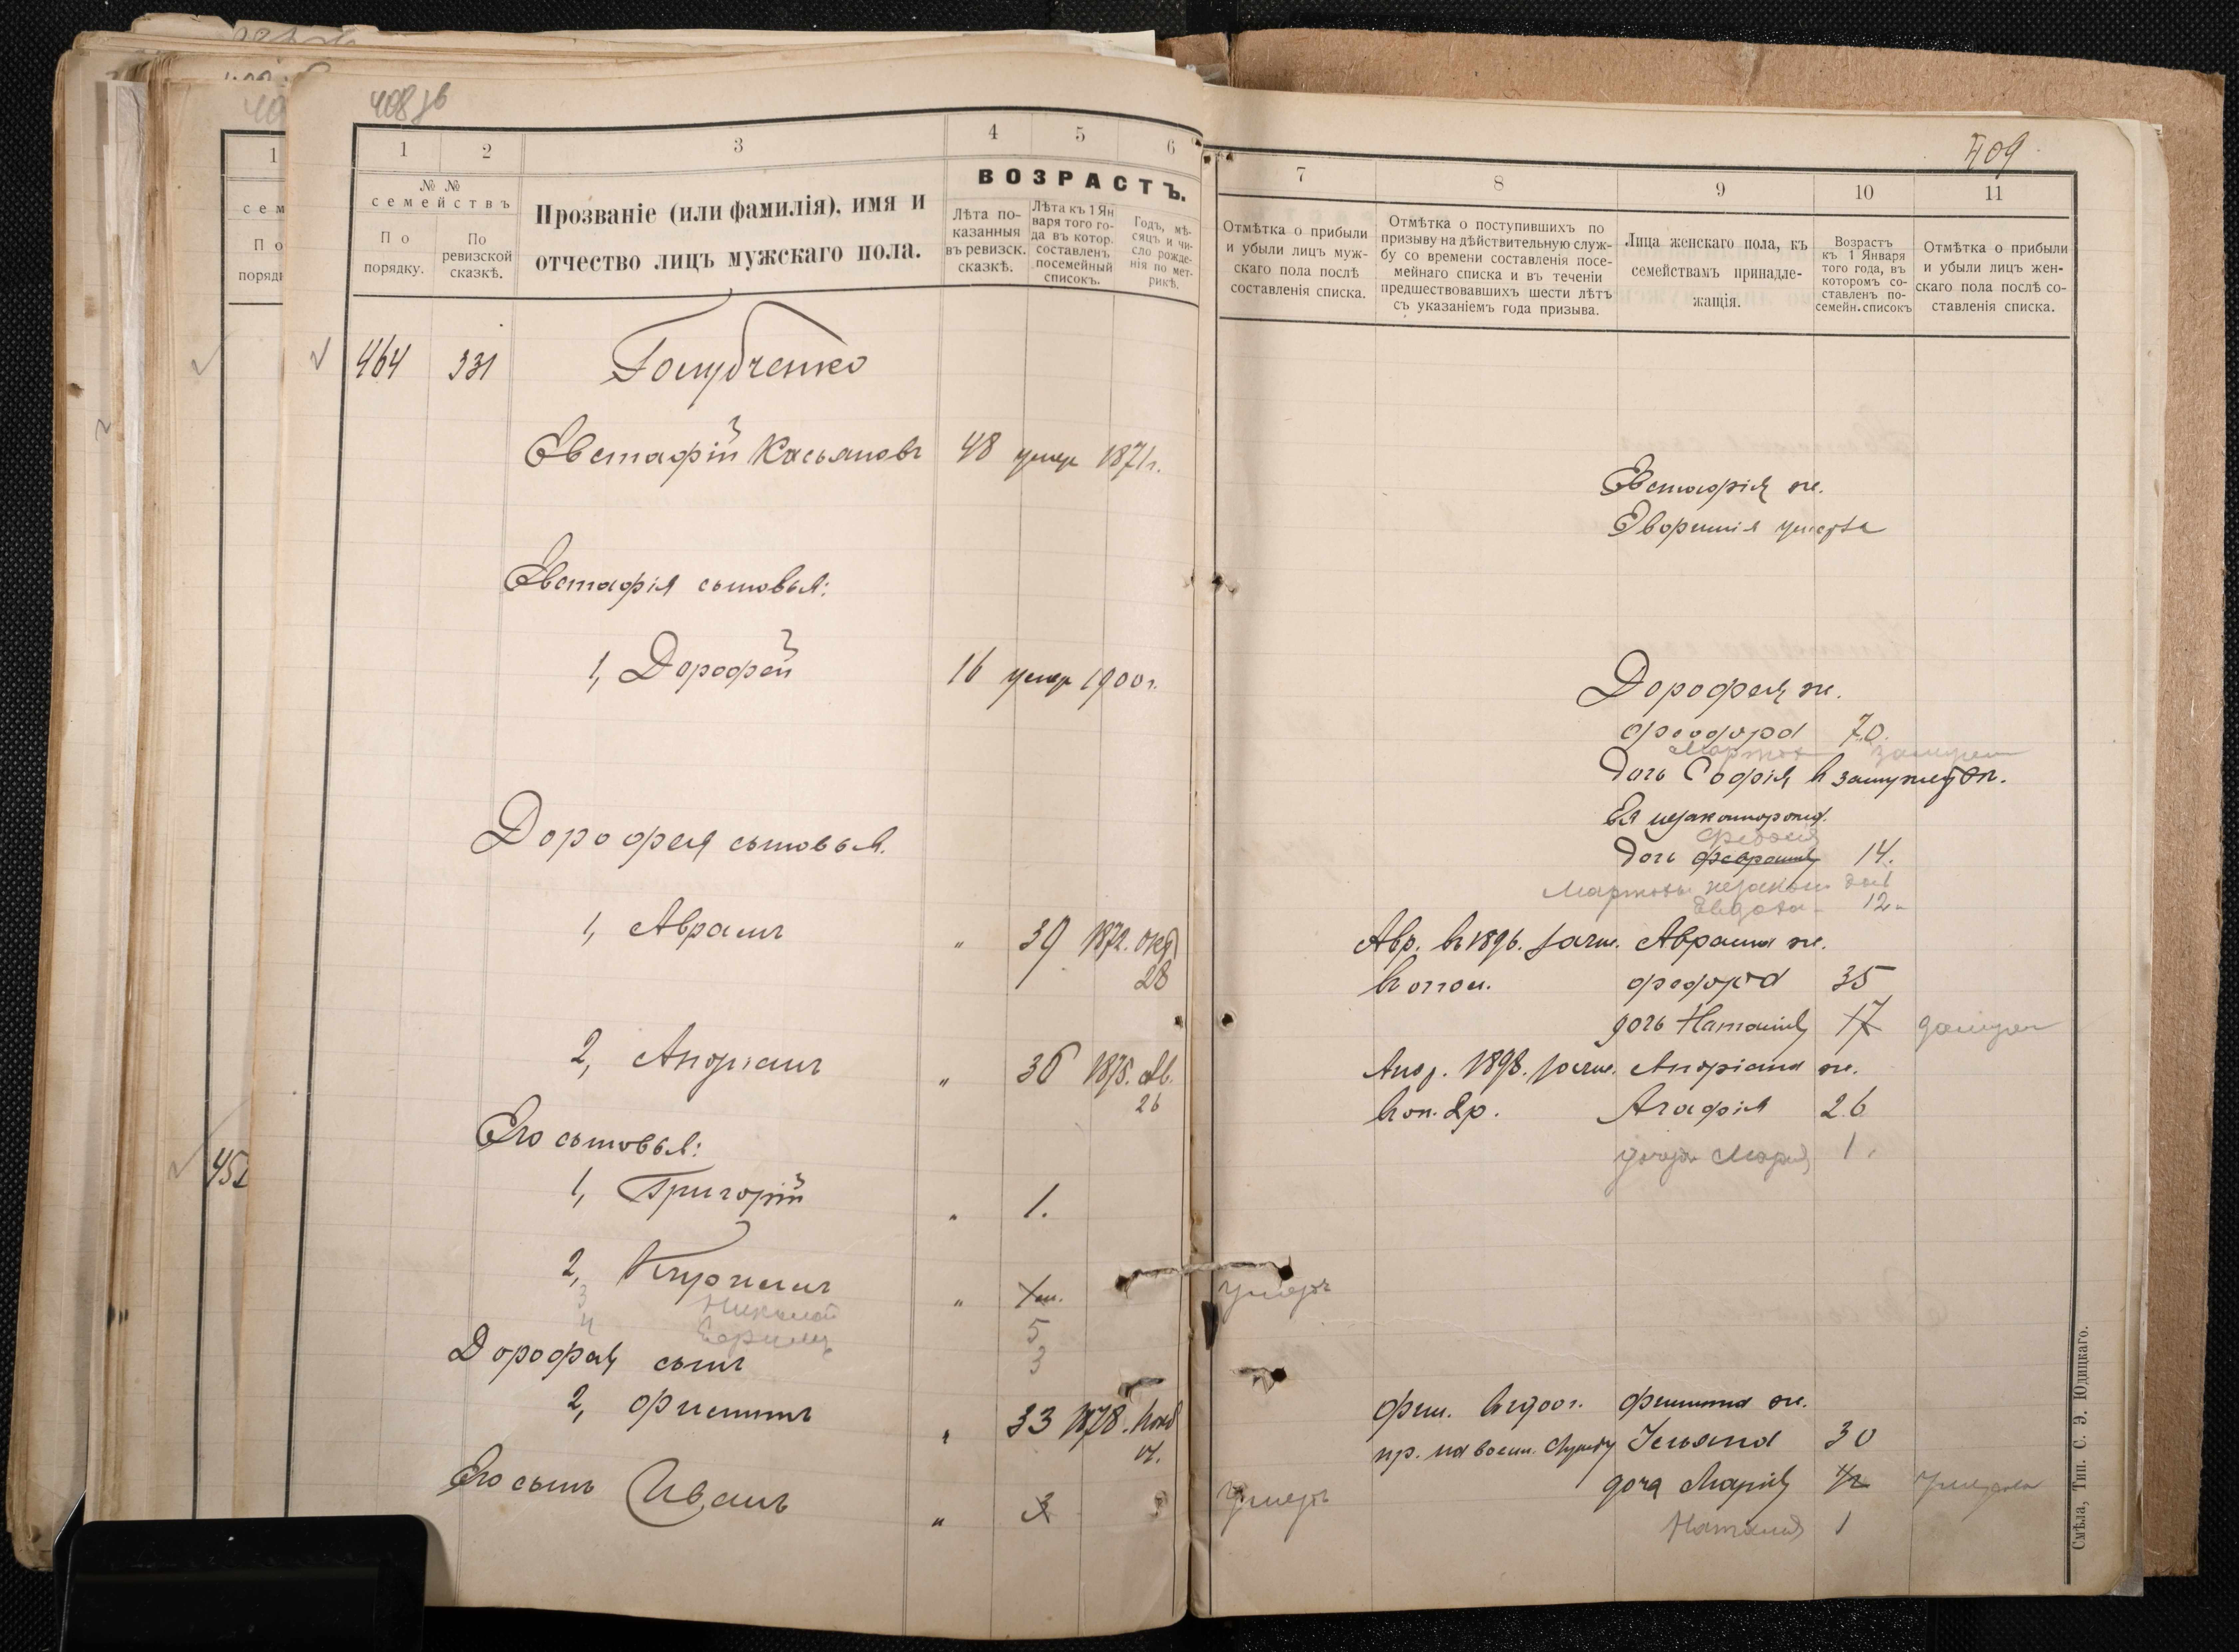 408 зв
1
2
3
4
5
6
№ №
семействъ
По
порядку.
По
ревизской
сказкѣ.
Прозваніе (или фамилія), имя и
отчество лицъ мужскаго пола.
ВОЗРАСТЪ.
Лѣта по-
казанныя
въ ревизск.
сказкѣ.
Лѣта къ 1 Ян
варя того го-
да въ котор.
составленъ
посемейный
списокъ.
Годъ, мѣ-
сяцъ и чи-
сло рожде-
нія по мет-
рикѣ.
464 331 Голубченко
Евстафій Касьяновъ 48 умер 1871г.
Евстафія сыновья:
1, Дорофей 16 умер 1900г.
Дорофея сыновья.
1, Аврамъ " 39 1872. окт
28
2, Андріанъ " 36 1875. Ав.
26
Его сыновья:
1, Григорій " 1.
2, Кирилъ "
3 Николай 5
4 3
Дорофея сынъ
2, Филиппъ " 33 1878. Нояб
14.
Его сынъ Иванъ " 3
452
409
7
8
9
10
11
Отмѣтка о прибыли
и убыли лицъ муж-
скаго пола послѣ
составленія списка.
Отмѣтка о поступившихъ по
призыву на дѣйствительную служ-
бу со времени составленія посе-
мейнаго списка и въ теченіи
предшествовавшихъ шести лѣтъ
съ указаніемъ года призыва.
Лица женскаго пола, къ
семействамъ принадле-
жащія.
Возрастъ
къ 1 Января
того года, въ
которомъ со-
ставленъ по-
семейн. списокъ
Отмѣтка о прибыли
и убыли лицъ жен-
скаго пола послѣ со-
ставленія списка.
Евстафія ж.
умерла
Дорофея ж.
Феодора 70.
Марта замужем
дочь Софія в замужест.
Ея незаконорожд.
Федосія
дочь 14.
Марты незакон доч
Евдокія 12
Авр. в 1896. зачис. Аврама ж.
в опол. Федора 35
дочь Наталія 17 замуж
Анд. 1898. зачис. Андріана ж.
Агафія 26
дочери Марія 1.
умеръ
Фил. в 1900г. Филиппа ж.
пр. на воен. службу Ульяна 30
умеръ дочь Марія 1/2 умерла
Наталія 1
Смѣла, Тип. С. Э. Юдицкаго.